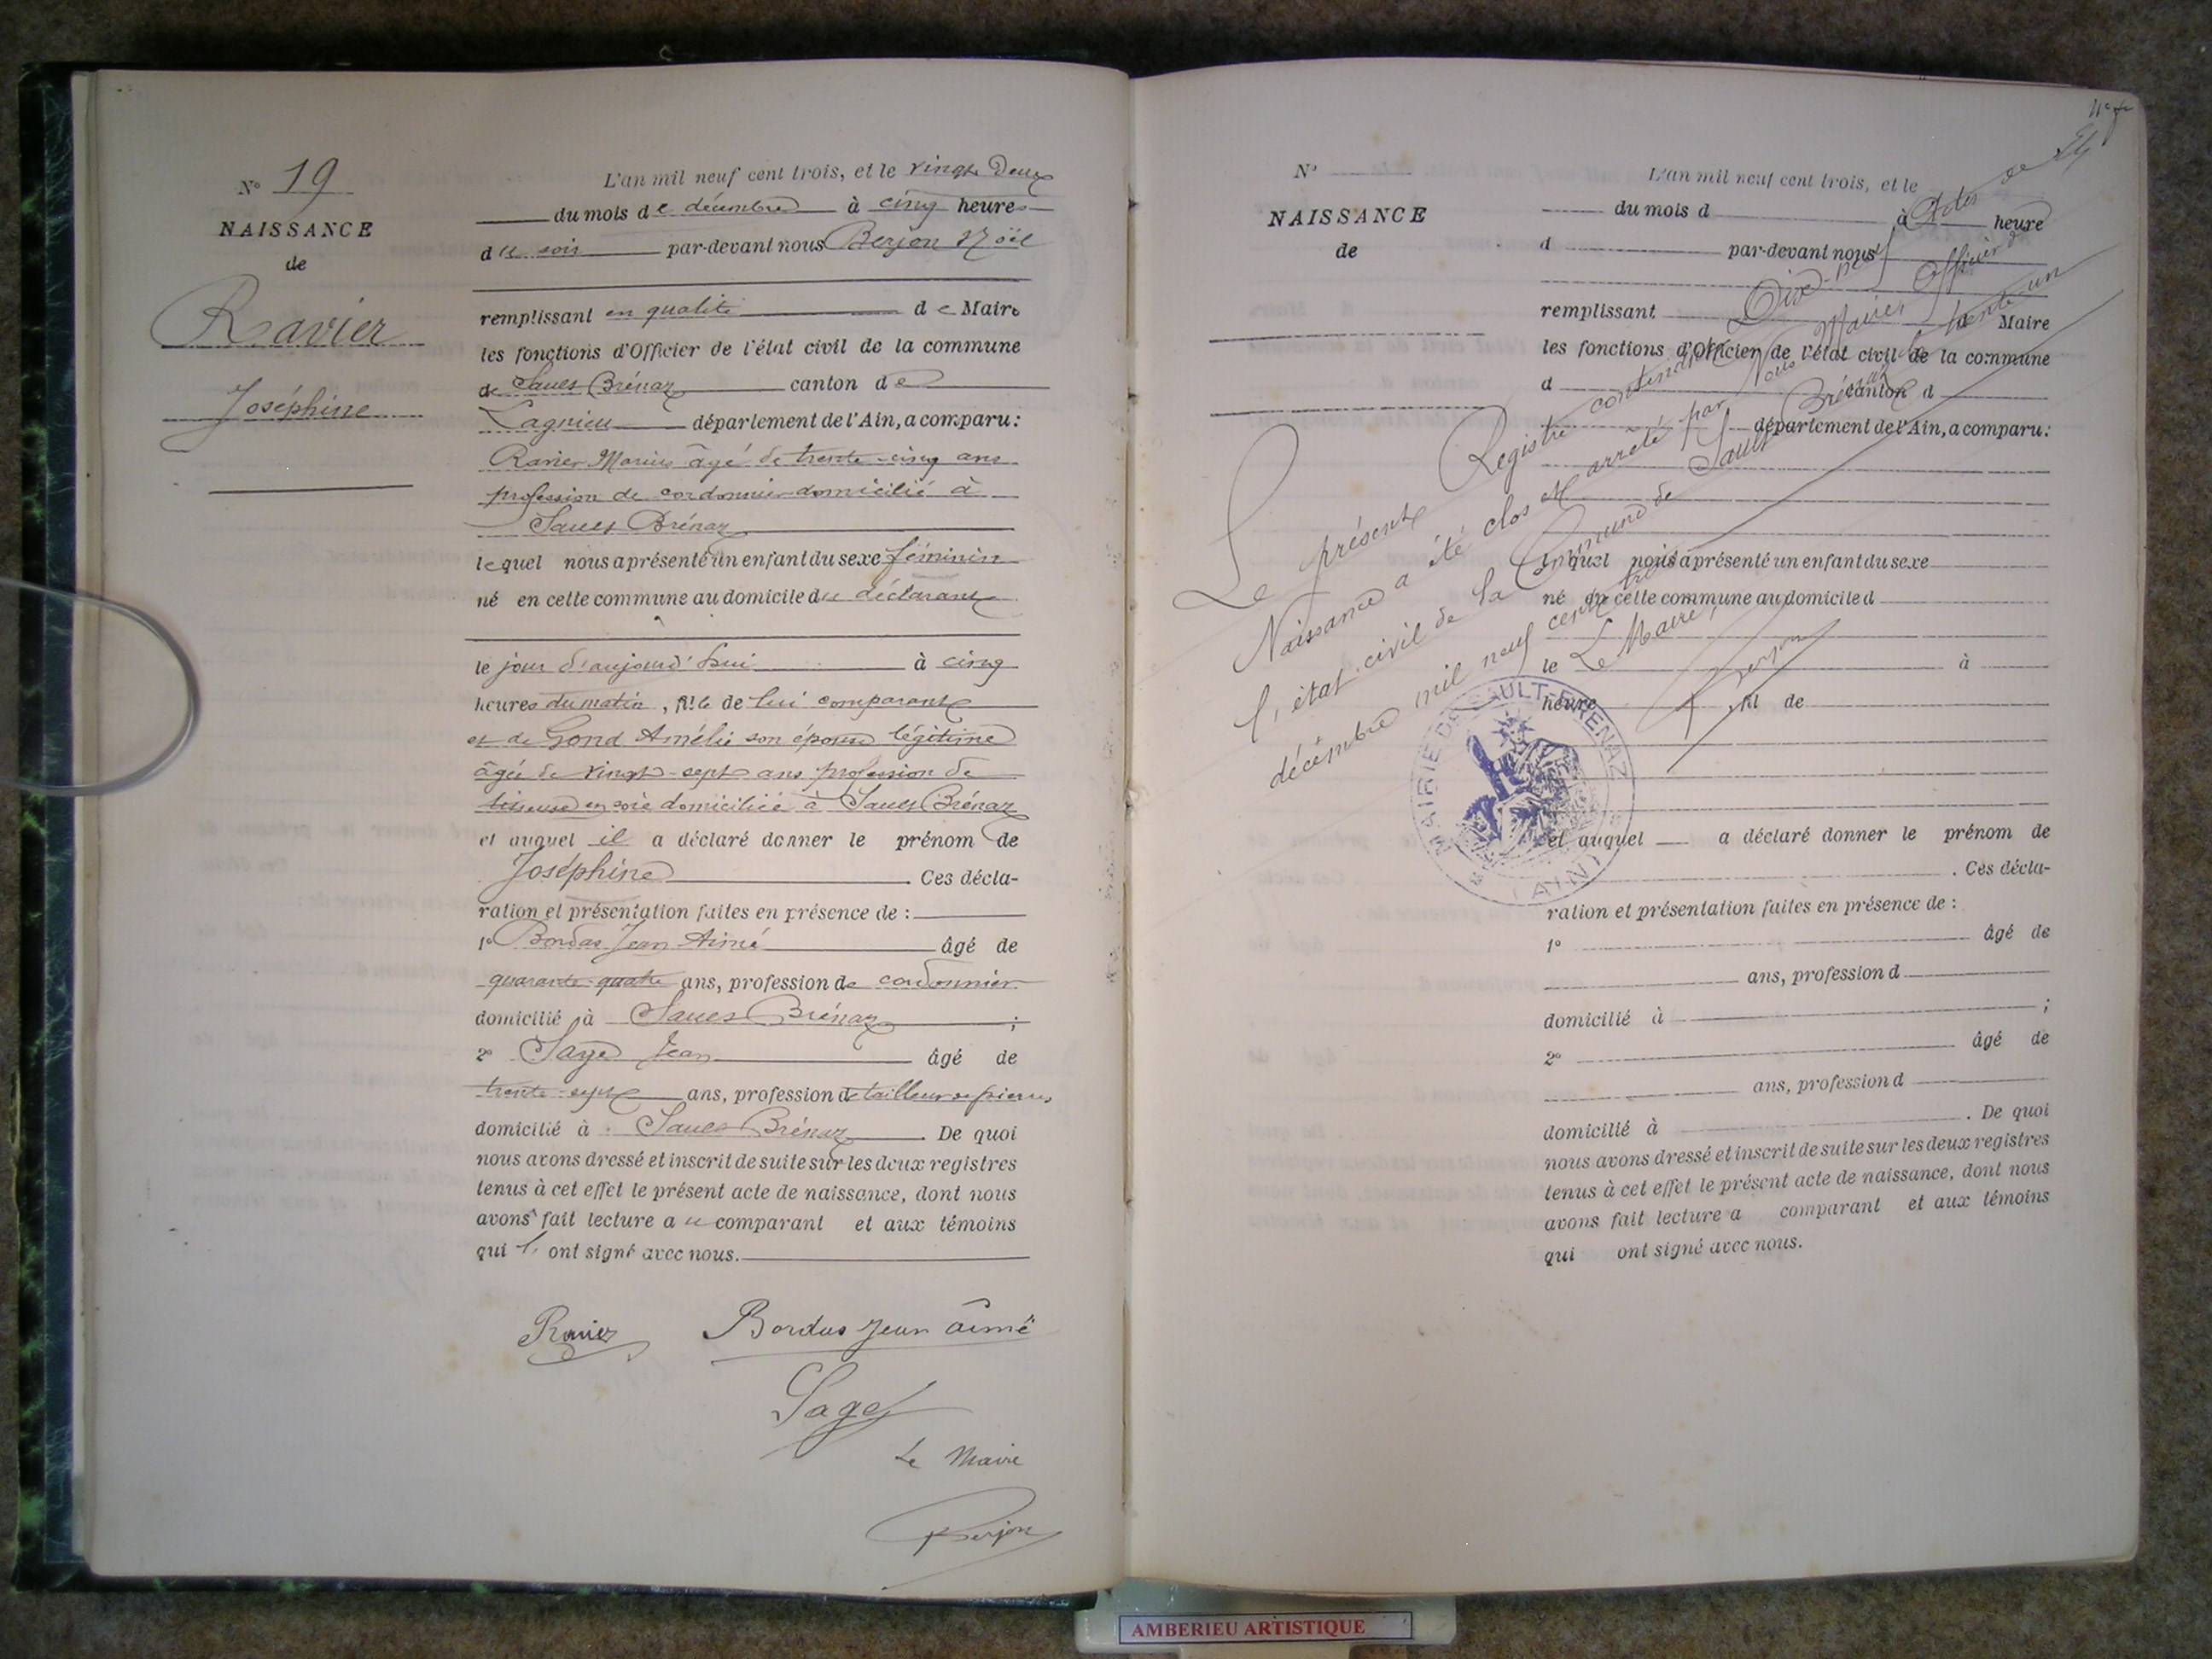 N° 19
NAISSANCE
de
Ravier
Joséphine
L'an mil neuf cent trois, et le vingt Deux
du mois de décembre à cinq heures
du soir par-devant nous Berjon Noël
remplissant en qualité de Maire
les fonctions d'Officier de l'état civil de la commune
de Sault Brénaz canton de
Lagnieu département de l'Ain, a comparu :
Ravier Marius âgé de trente-cinq ans
profession de cordonnier domicilié à
Sault Brénaz
lequel nous a présenté un enfant du sexe féminin
né en cette commune au domicile du déclarant
le jour d'aujourd'hui à cinq
heures du matin, fille de lui comparant
et de Gond Amélie son épouse légitime
âgée de vingt-sept ans profession de
tisseuse en soie domiciliée à Sault Brénaz
et auquel il a déclaré donner le prénom de
Joséphine Ces décla-
ration et présentation faites en présence de :
1° Bordas Jean Aimé âgé de
quarante-quatre ans, profession de cordonnier
domicilié à Sault Brénaz ;
2° Sage Jean âgé de
trente-sept ans, profession de tailleur de pierres
domicilié à Sault Brénaz. De quoi
nous avons dressé et inscrit de suite sur les deux registres
tenus à cet effet le présent acte de naissance, dont nous
avons fait lecture au comparant et aux témoins
qui l' ont signé avec nous.
Ravier Bordas Jean aimé
Sage
Le Maire
Berjon
N°
NAISSANCE
de
L'an mil neuf cent trois, et le
du mois d à heure
d par-devant nous
remplissant d Maire
les fonctions d'Officier de l'état civil de la commune
d canton d
département de l'Ain, a comparu :
lequel nous a présenté un enfant du sexe
né en cette commune au domicile d
le à
heure , fil de
et auquel a déclaré donner le prénom de
. Ces décla-
ration et présentation faites en présence de :
1° âgé de
ans, profession d
domicilié à ;
2° âgé de
ans, profession d
domicilié à . De quoi
nous avons dressé et inscrit de suite sur les deux registres
tenus à cet effet le présent acte de naissance, dont nous
avons fait lecture a comparant et aux témoins
qui ont signé avec nous.
Le présent Registre contenant Dix-neuf Actes de
Naissance a été clos et arrêté par Nous Maire Officier de
l'état civil de la Commune de Sault Brénaz le trente-un
décembre mil neuf cent trois
Le Maire,
Berjon
MAIRIE DE SAULT-BRENAZ
(AIN)
AMBERIEU ARTISTIQUE